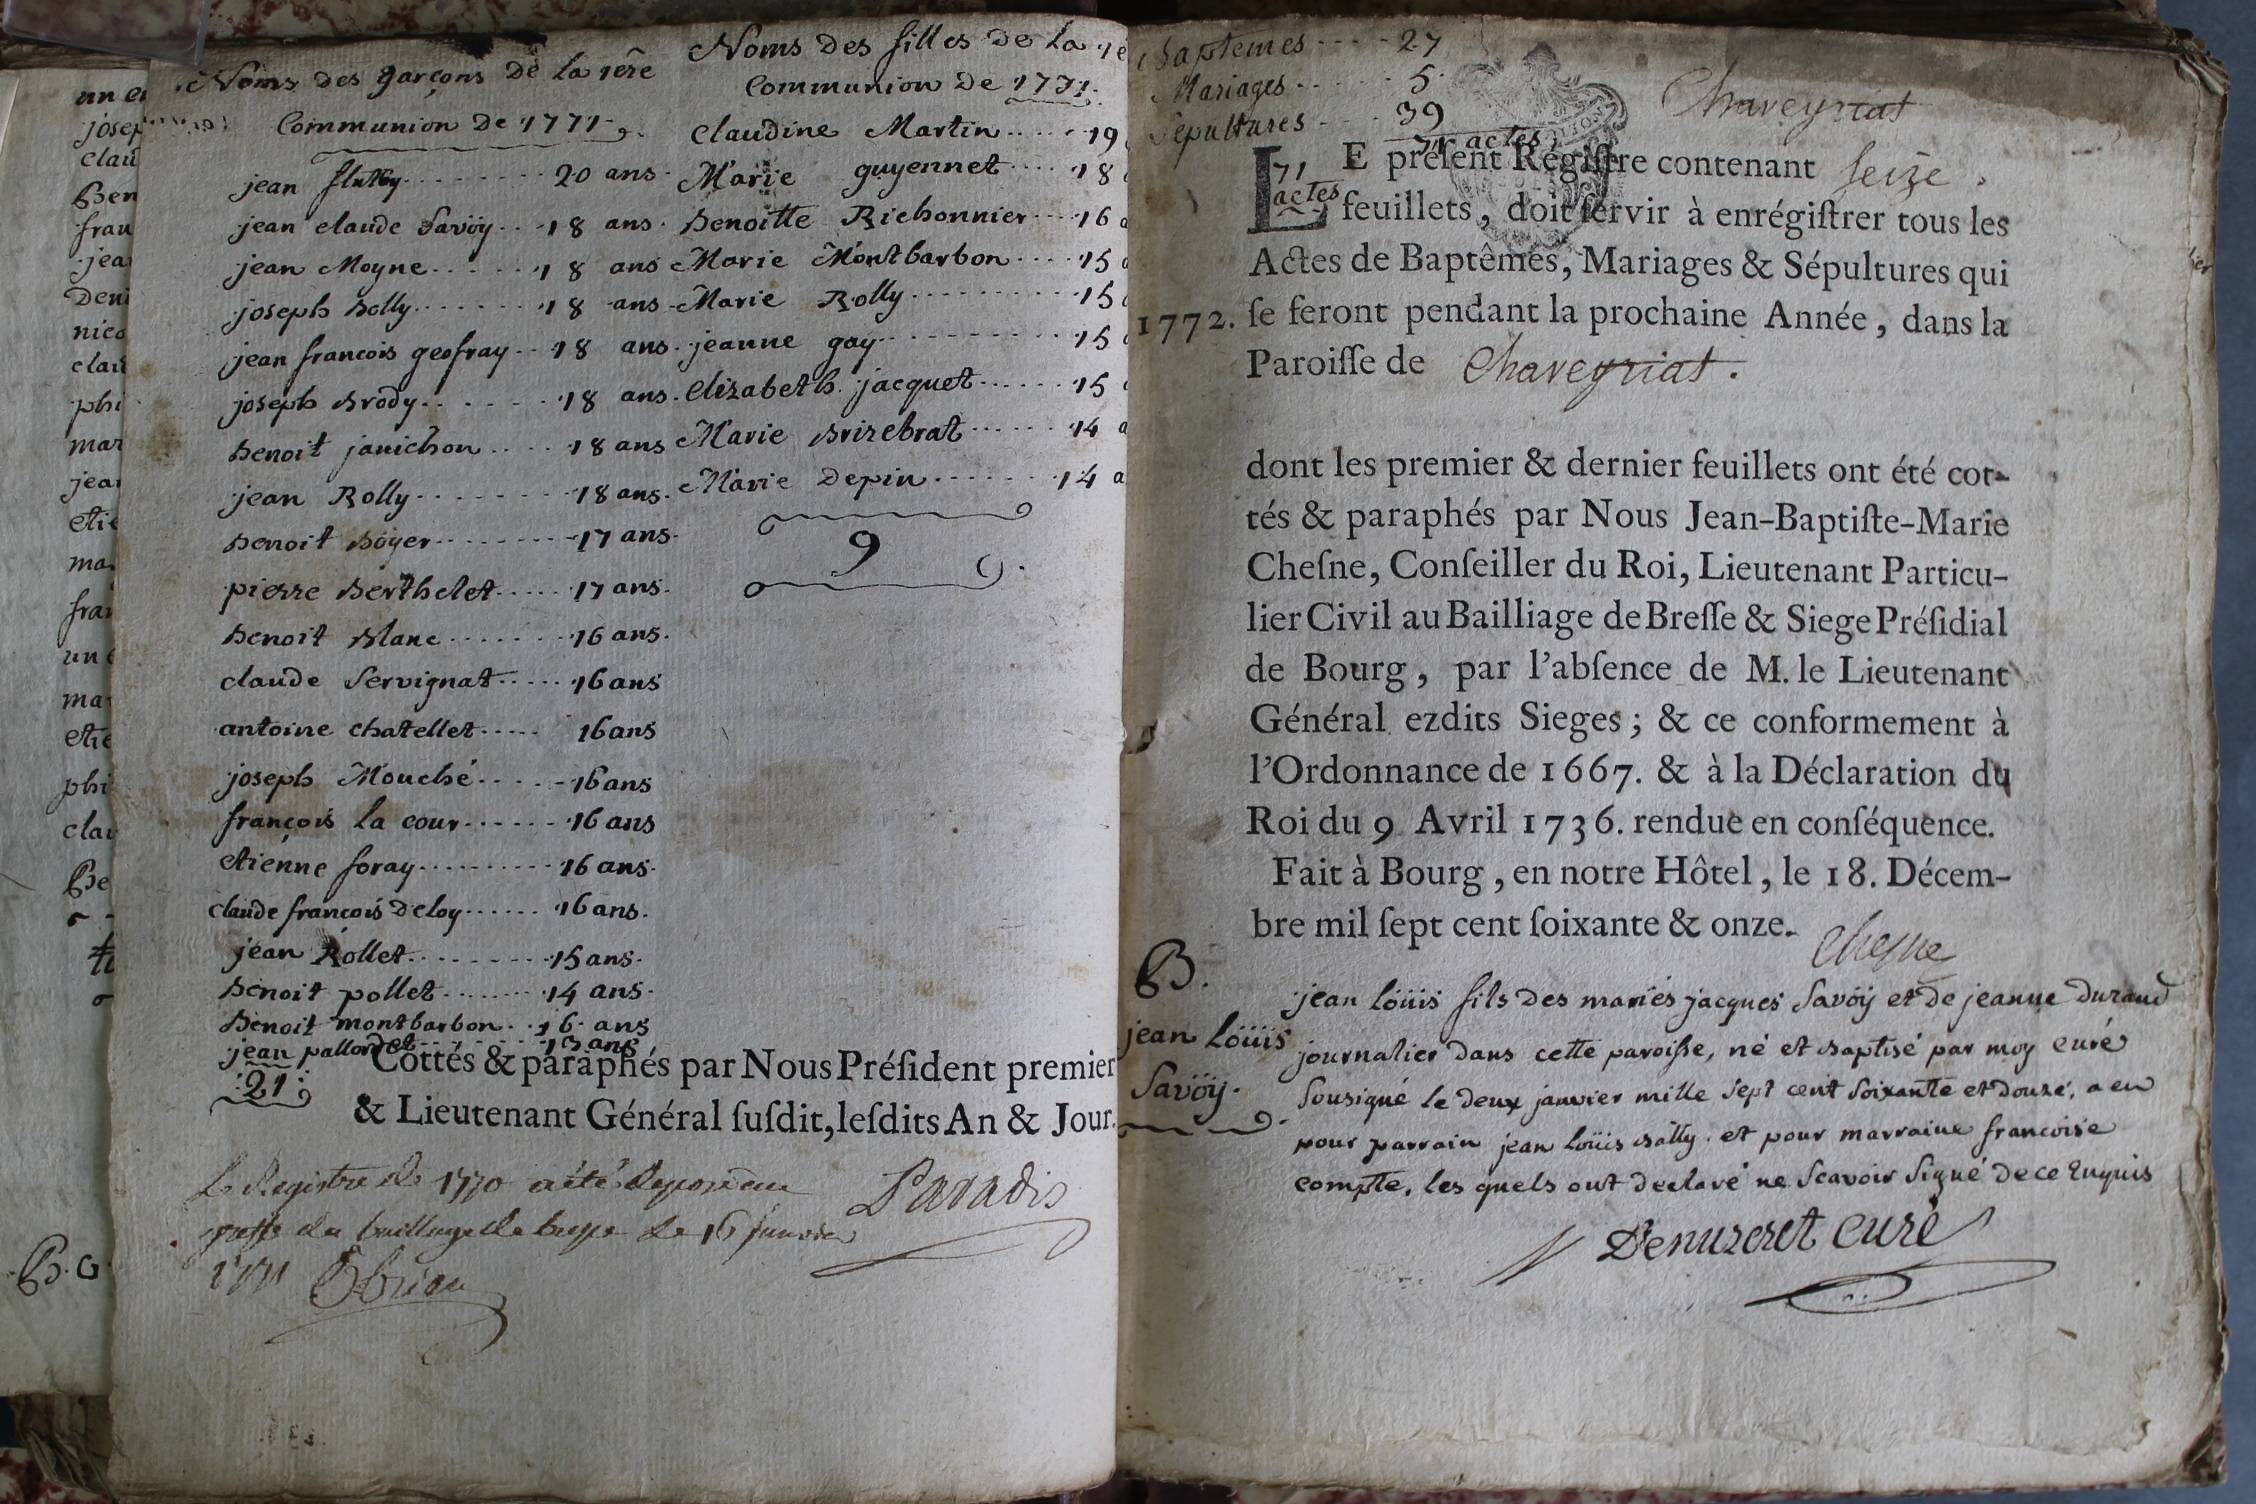 Noms des garçons de la 1ere
Communion de 1771
jean 20 ans.
jean claude Savöÿ 18 ans.
jean Moyne 18 ans
joseph Bolly 18 ans
jean francois geofray 18 ans.
joseph Brody 18 ans.
Benoit janichon 18 ans
jean Rolly 18 ans.
Benoit Böyer 17 ans.
pierre Berthelet 17 ans.
Benoit Blanc 16 ans.
claude Servignat 16 ans
antoine chatellet 16 ans
joseph Mouché 16 ans
françois la cour 16 ans
etienne foray 16 ans.
claude françois Deloy 16 ans.
jean Rollet 15 ans.
Benoit pollet 14 ans.
Benoit montbarbon 16 ans
jean pallordet ans
21
Noms des filles de la 1e
Communion de 1771.
Claudine Martin 19
Marie guyennet 18
Benoitte Richonnier 16 a
Marie Montbarbon 15
Marie Rolly 15
jeanne gay 15
Elizabeth jacquet 15
Marie Brizebrat 14 a
Marie Depin 14 a
9
Cottés & paraphés par Nous Préſident premier
& Lieutenant Général ſuſdit, leſdits An & Jour.
Le Registre de 1770 a été déposé au
greffe du bailliage de bresse le 16 janvier
1771
Paradis
Baptemes 27
Mariages 5
Sépultures 39
71 actes
Chaveyriat
71
actes
LE préſent Régiſtre contenant seize.
feuillets, doit ſervir à enrégiſtrer tous les
Actes de Baptêmes, Mariages & Sépultures qui
1772. ſe feront pendant la prochaine Année, dans la
Paroiſſe de Chaveyriat.
dont les premier & dernier feuillets ont été cot-
tés & paraphés par Nous Jean-Baptiſte-Marie
Cheſne, Conſeiller du Roi, Lieutenant Particu-
lier Civil au Bailliage de Breſſe & Siege Préſidial
de Bourg, par l'abſence de M. le Lieutenant
Général ezdits Sieges; & ce conformement à
l'Ordonnance de 1667. & à la Déclaration du
Roi du 9 Avril 1736. rendue en conſéquence.
Fait à Bourg, en notre Hôtel, le 18. Décem-
bre mil ſept cent ſoixante & onze.
Chesne
B.
jean Löüis
Savöÿ.
jean löüis fils des mariés jacques Savöÿ et de jeanne durand
journalier dans cette paroisse, né et Baptisé par moy curé
Sousigné le deux janvier mille sept cent soixante et douze, a eu
pour parrain jean löüis Bâlly. et pour marraine francoise
compte, les quels ont declaré ne Scavoir Signé de ce Enquis
Denuzeret curé